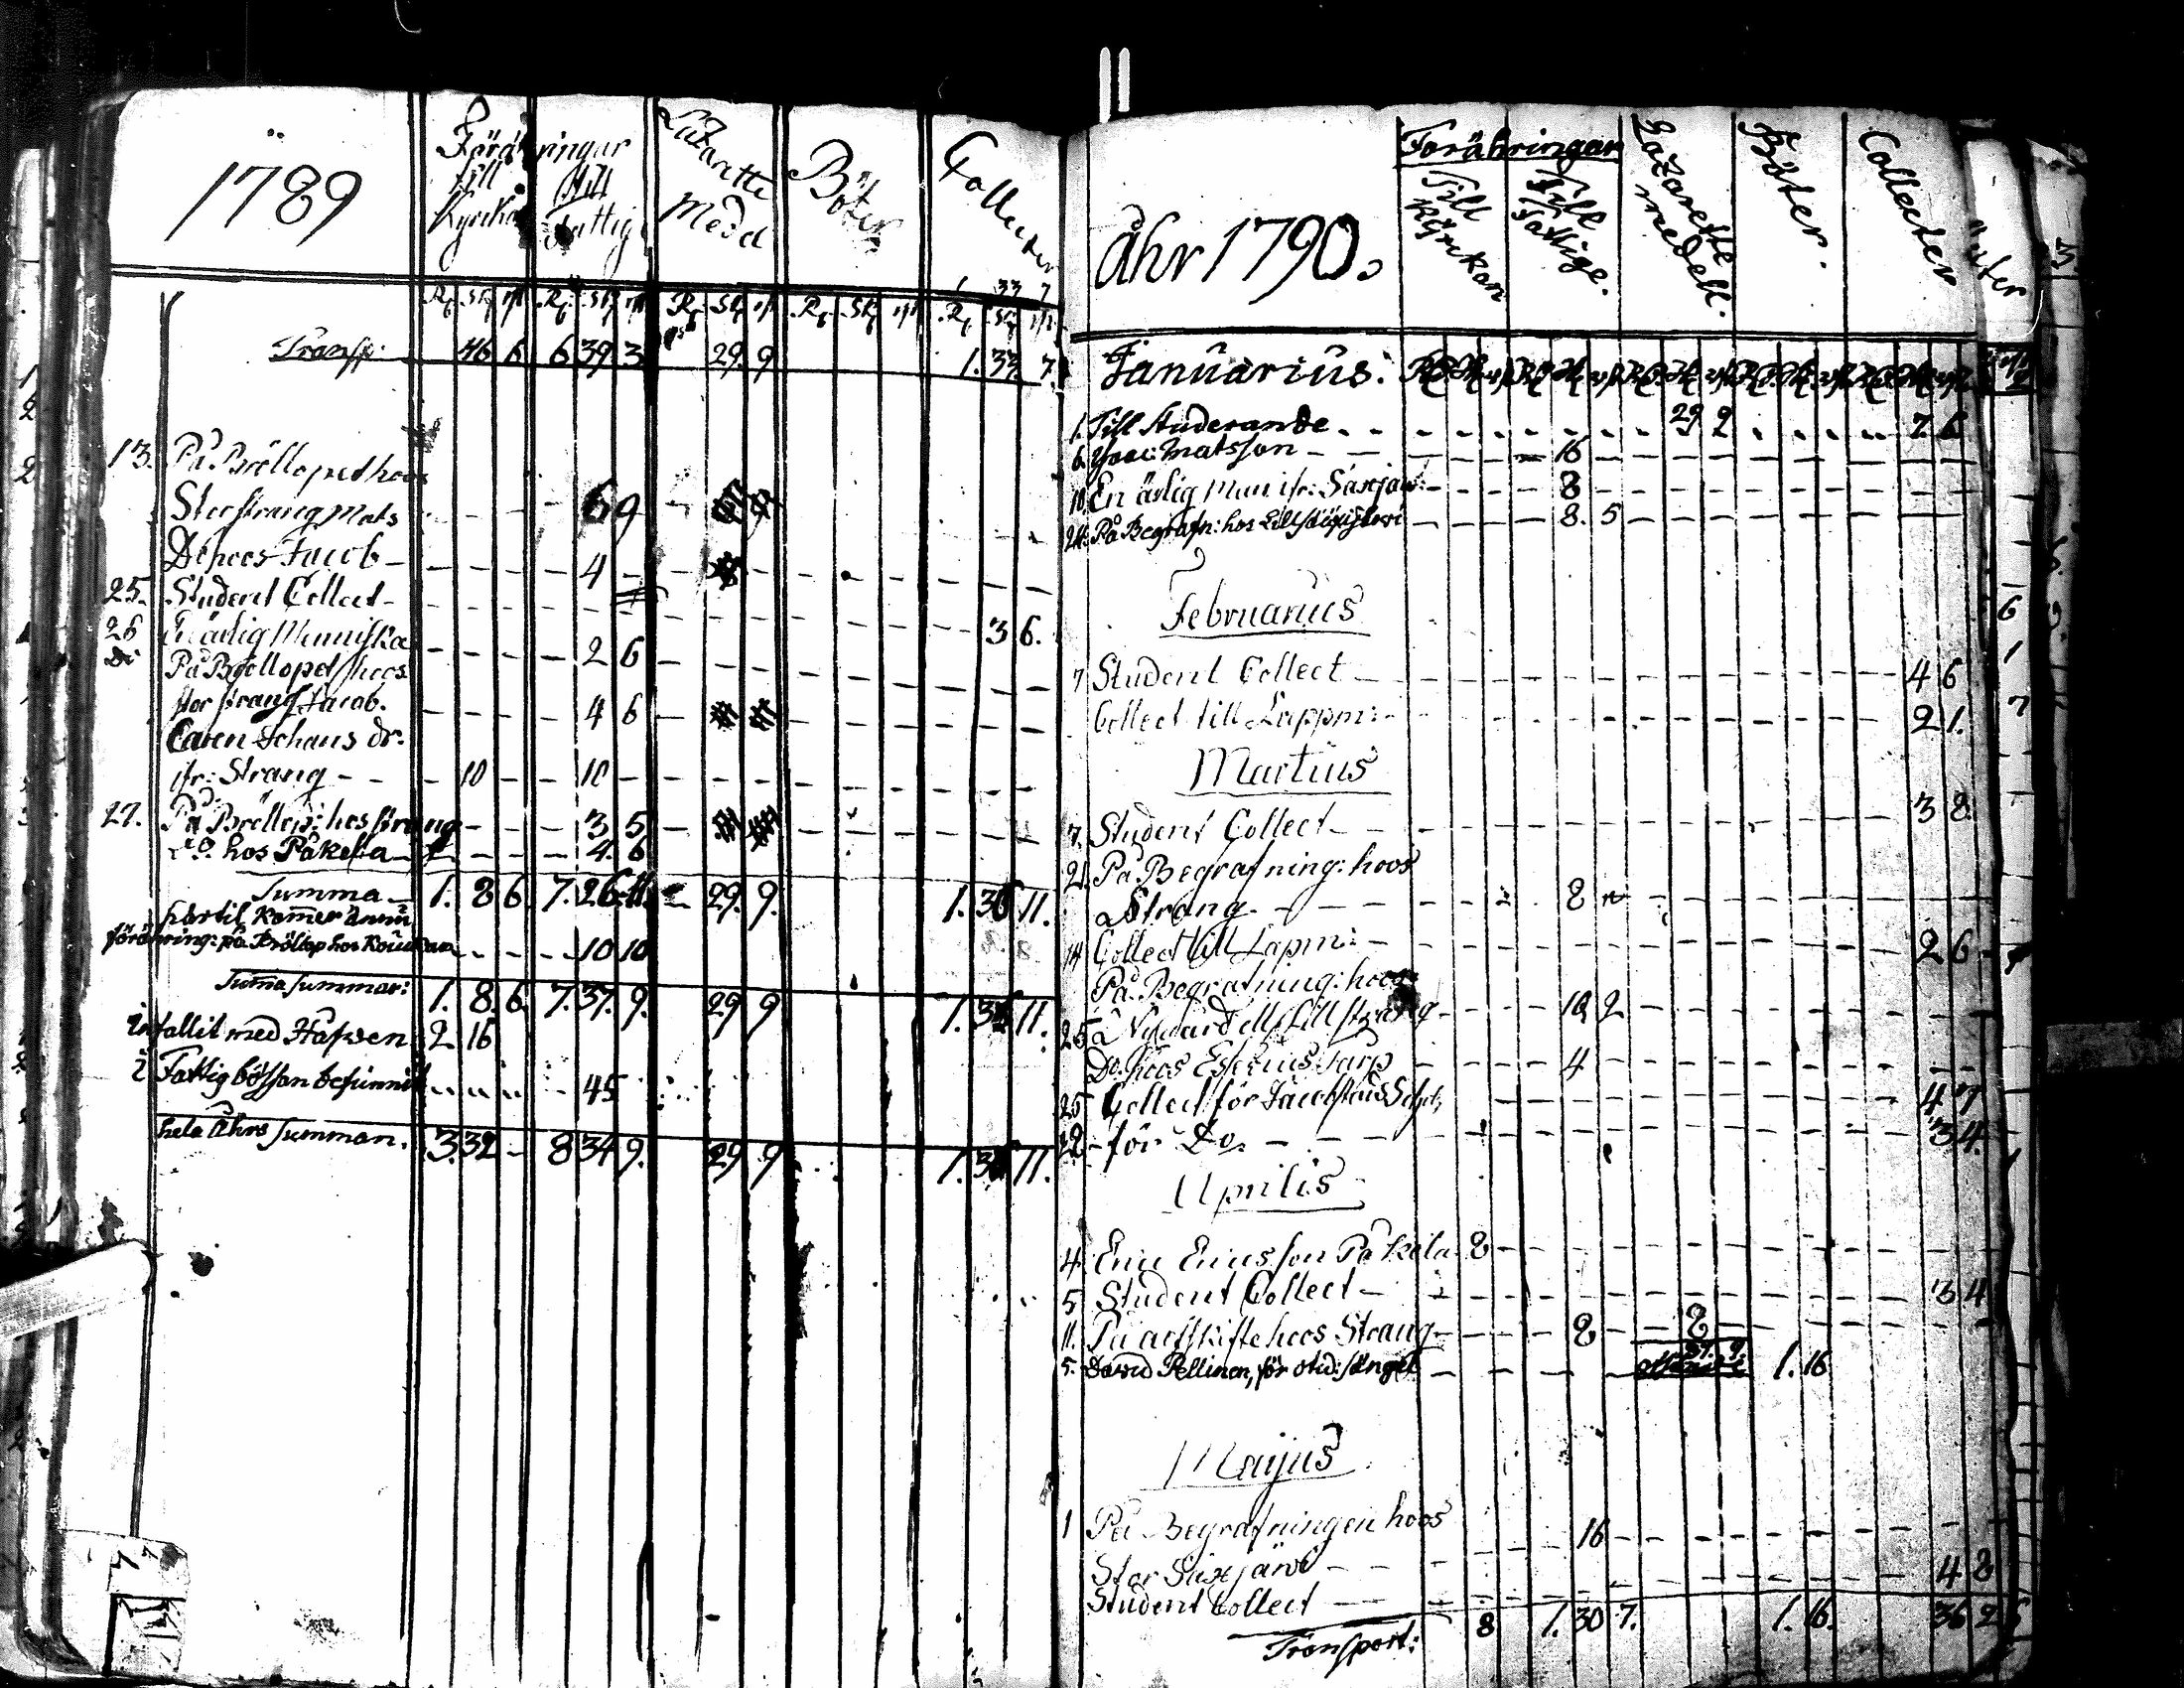 1789
Förähringar
till
Kyrkan
till
Fattig
Lazarette
Medel
Böter
Collecter
1. 33 7
Rd. sk. rst. Rd. sk. rst. Rd. sk. rst. Rd. sk. rst. Rd. sk. rst.
Transp: 46 6 6 39 3 29. 9 1. 33. 7.
13. På Bröllopet hoos
Storstrang Mats 6 9
Do hoos Jacob 4
25. Student Collect 3 6.
26 En ärlig Menniska 2 6
Do På Bröllopet hoos
stor strang Jacob. 4 6
Caren Johans dr.
ifr: Strang 10 10
27. På Bröllop: hos strang 3 5
Do hos Påkela 4. 6
Summa 1. 8 6 7. 26 11. 29. 9. 1. 36 11.
härtil kommer ännu
förähring: på Bröllop hos 10 10
Summa summar: 1. 8. 6. 7. 37. 9. 29 9 1. 11.
infallit med Håfwen 2 16
i Fattigbössan befunnit 45
hela Åhrs summan. 3. 32 - 8 34 9. 29 9 1. 11.
åhr 1790.
Förähringar
Till
Kyrkan
Till
Fattige.
Lazarette
medell.
Böter.
Collecter
Januarius.
1. Till Studerande 29 9 7. 6
6. Matsson 16
10. En ärlig Man ifr: Saxjärf: 8
24. På Begrafn: hos 8. 5
Februarius
7 Student Collect 4 6
Collect till Lappm: 2 1.
Martius
7. Student Collect 3 8.
21. På Begrafning: hoos
Strang 8
14 Collect till Lapm: 2 6
På Begrafning: hoos
25 å 10 2
Do hoos 4
25 Collect för 4 7
28 för Do. 3 4.
Aprilis
4 Eric Ericsson Påkela 8
5 Student Collect 3 4
11. På hoos Strang 8 8
5. David Pellinen, för otid: sänget 1. 16
Maijus
1 På Begrafningen hoos 16
Stor Saxjärvi
Student Collect 4 8
Transport: 8 1. 30 7. 1. 16. 36 2